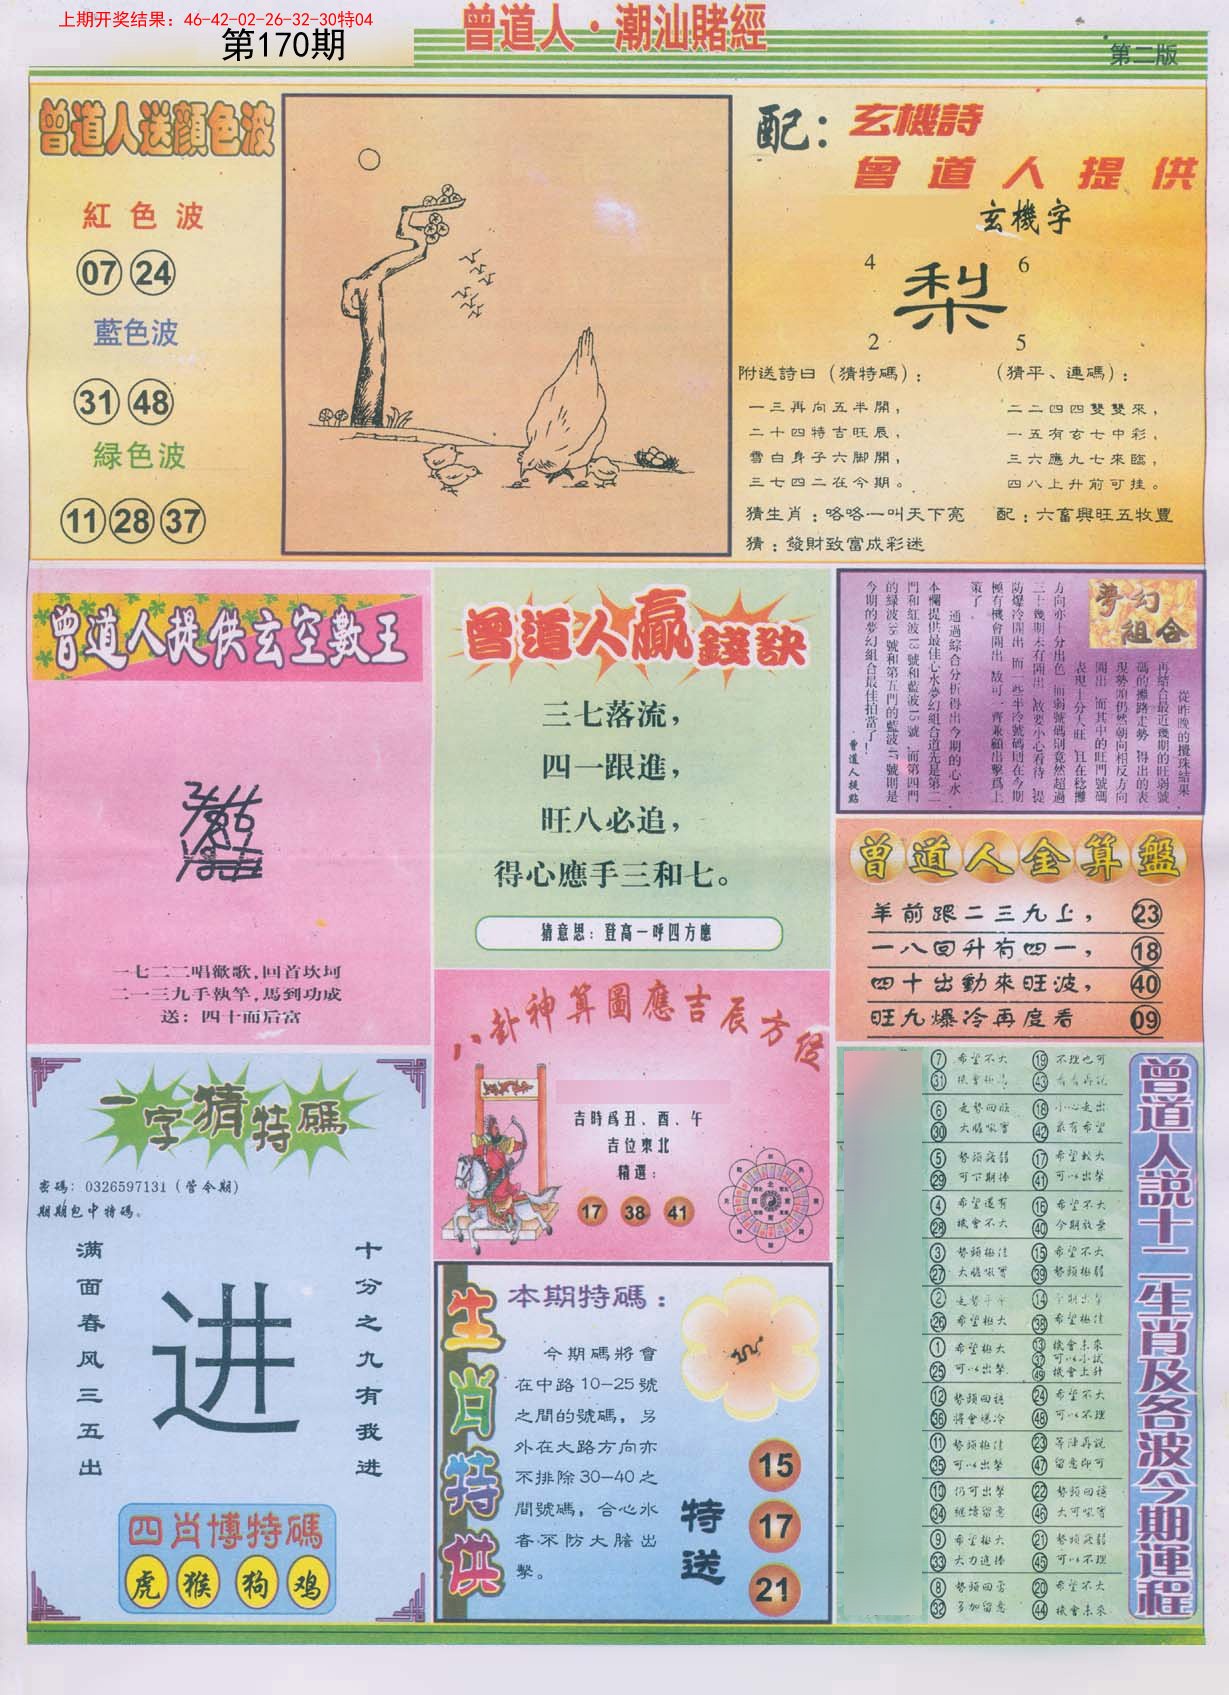 上期开奖结果：46-42-02-26-32-30特04
第170期
曾道人·潮汕賭經
第二版
曾道人送顔色波
紅色波
07 24
藍色波
31 48
緑色波
11 28 37
配：玄機詩
曾道人提供
玄機字
4 6
梨
2 5
附送詩曰（猜特碼）：
一三再向五半開，
二十四特吉旺辰，
雪白身子六脚開，
三七四二在今期。
（猜平、連碼）：
二二四四雙雙來，
一五有玄七中彩，
三六應九七來臨，
四八上升前可挂。
猜生肖：咯咯一叫天下亮
配：六畜興旺五牧豐
猜：發財致富成彩迷
曾道人提供玄空數王
一七二二唱歡歌，回首坎坷
二一三九手執竿，馬到功成
送：四十而后富
曾道人贏錢訣
三七落流，
四一跟進，
旺八必追，
得心應手三和七。
猜意思：登高一呼四方應
夢幻組合
從昨晚的攪珠結果，
再結合最近幾期的旺弱號
碼的攤路走勢，得出的表
現勢頭仍然朝向相反方向
開出，而其中的旺門號碼
表現十分大旺，且在稔攤
方向亦十分出色，而弱號碼則竟然超過
三十幾期未有開出，故要小心看待，提
防爆冷開出，而一些半冷號碼則在今期
極有機會開出，故可一齊兼顧出擊爲上
策了。
通過綜合分析得出今期的心水，
本欄提供最佳心水夢幻組合道先是第二
門和紅波13號和藍波15號，而第四門
的緑波38號和第五門的藍波47號則是
今期的夢幻組合最佳拍當了！
曾道人提點
曾道人金算盤
羊前跟二三九上， 23
一八回升有四一， 18
四十出動來旺波， 40
旺九爆冷再度看 09
八卦神算圖應吉辰方位
吉時爲丑、酉、午
吉位東北
精選：
17 38 41
一字猜特碼
密碼：0326597131（管今期）
期期包中特碼。
满面春风三五出
进
十分之九有我进
四肖博特碼
虎 猴 狗 鸡
生肖特供
本期特碼：
今期碼將會
在中路10-25號
之間的號碼，另
外在大路方向亦
不排除30-40之
間號碼，合心水
者不防大膽出
擊。
特送
15
17
21
曾道人説十二生肖及各波今期運程
7 希望不大 19 不理也可
31 機會極高 43 看看再説
6 走勢回旺 18 小心走出
30 大膽吸實 42 最有希望
5 勢頭疲弱 17 希望較大
29 可下期捧 41 可以出擊
4 希望還有 16 希望不大
28 機會不大 40 今期放棄
3 勢頭極佳 15 希望不大
27 大膽吸實 39 勢頭極弱
2 走勢平平 14 下期出擊
26 希望極大 38 希望極佳
1 希望極大 13 機會未來
37 可以小試
25 可以出擊 49 機會上升
12 勢頭回穩 24 希望不大
36 將會爆冷 48 可以不理
11 勢頭極佳 23 等陣再説
35 可以出擊 47 留意即可
10 仍可出擊 22 勢頭回穩
34 繼續留意 46 大可吸實
9 希望極大 21 勢頭疲弱
33 大力追捧 45 可以不理
8 勢頭回落 20 希望不大
32 多加留意 44 機會未來